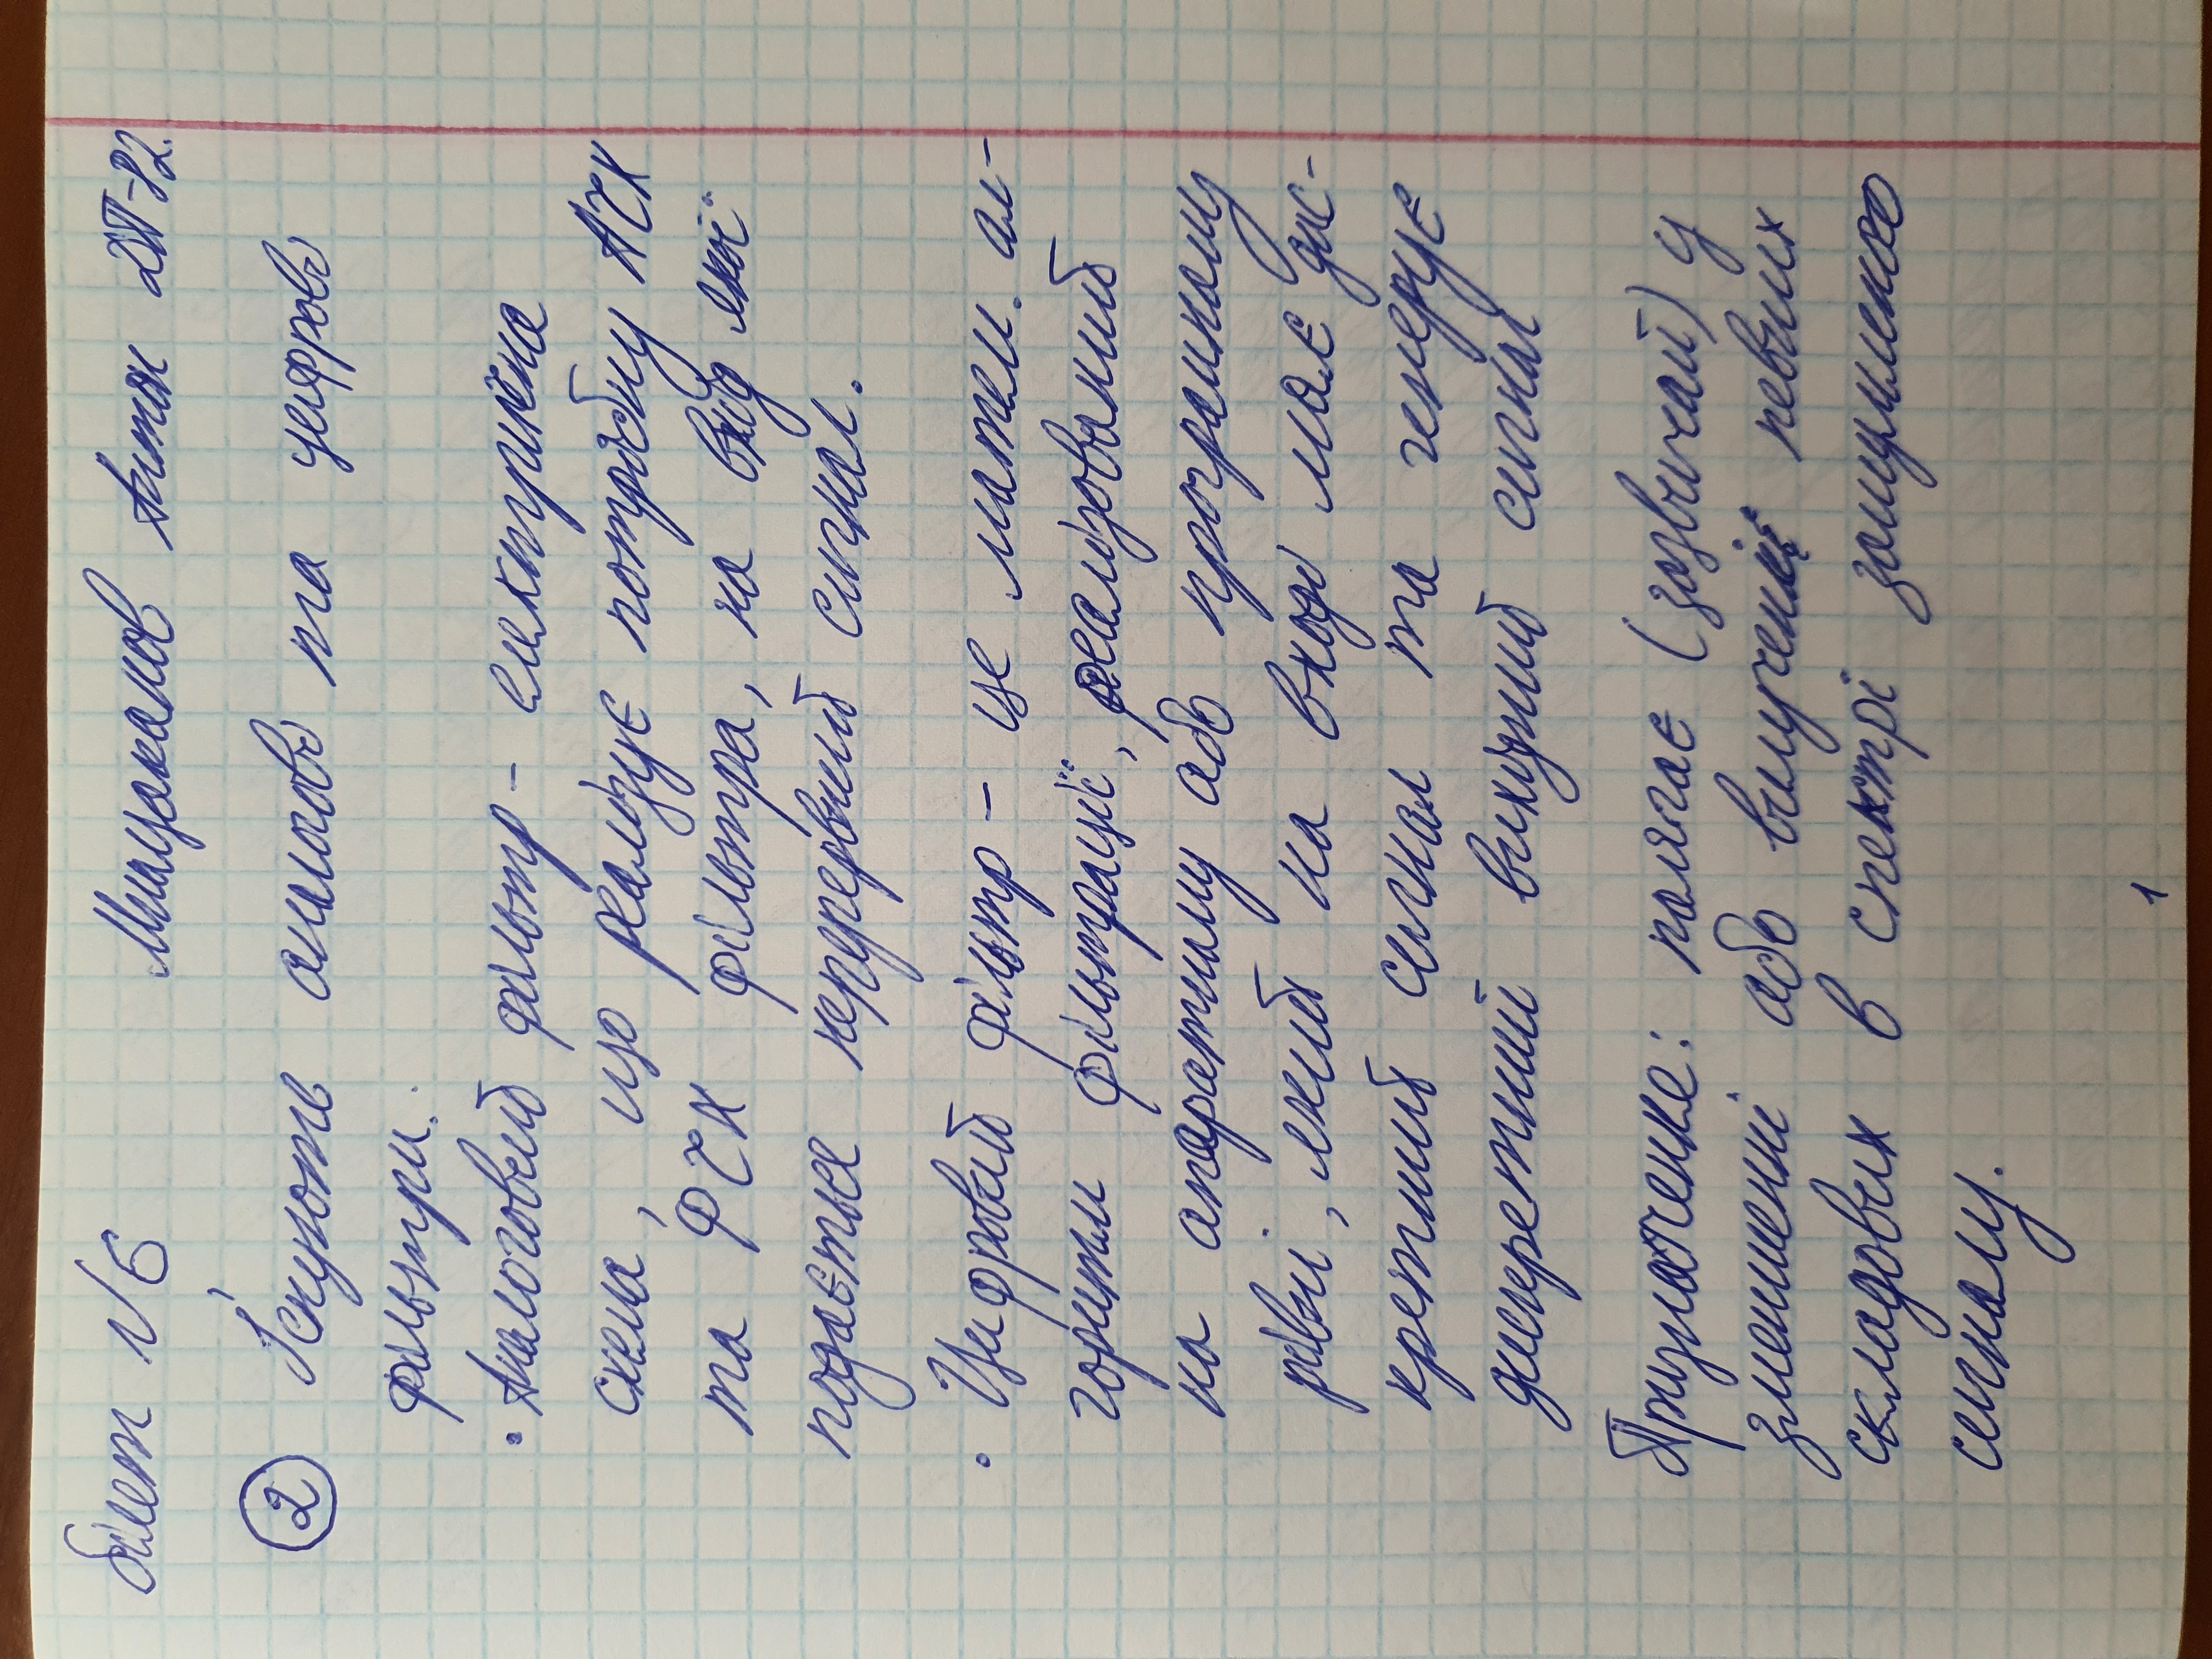 білет №6 Мнацаканов Антон ДП-82.
② Існують аналогові та цифрові
фільтри.
• Аналоговий фільтр – електрична
схема, що реалізує потрібну АЧХ
та ФЧХ фільтра, на вхід якої
подається неперервний сигнал.
• Цифровий фільтр – це матем. ал-
горитм фільтрації, реалізований
на апаратному або програмному
рівні, який на вході має дис-
кретний сигнал та генерує
дискретний вихідний сигнал
Призначення: полягає (зазвичай) у
зменшенні або вилученні певних
складових в спектрі зашумленого
сигналу.
1